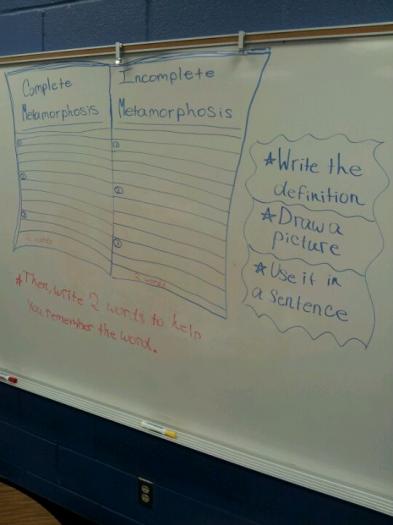 Complete
Metamorphosis
①
②
③
2 words
Incomplete
Metamorphosis
①
②
③
2 words
★Write the
definition
★Draw a
picture
★Use it in
a sentence
★Then, write 2 words to help
you remember the word.